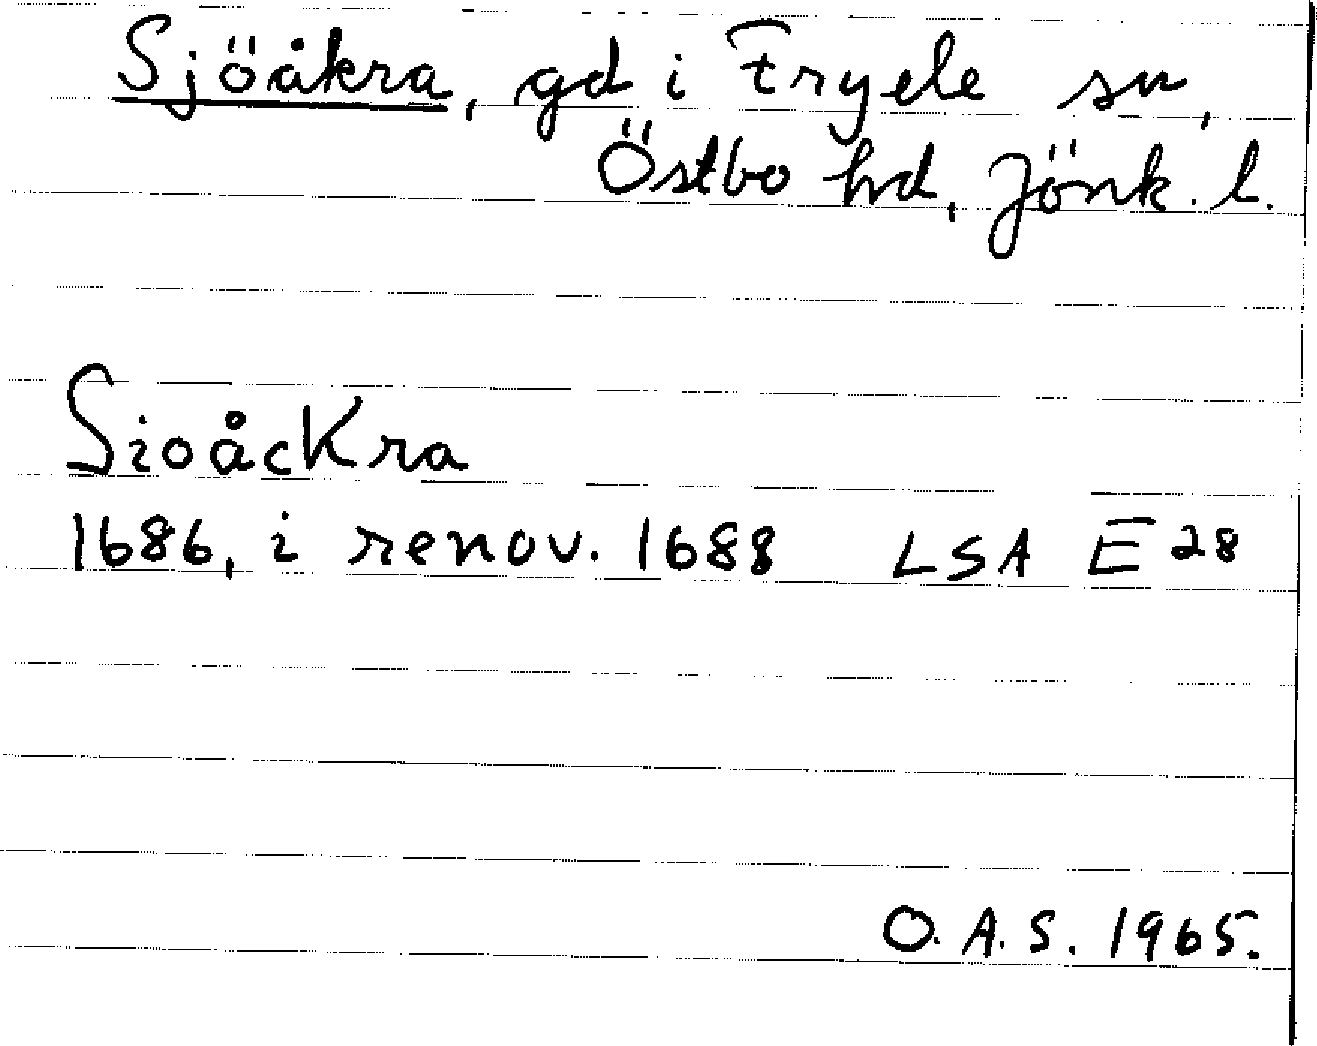 Sjöåkra, gd i Fryele sn,
Östbo hd, Jönk. l.
Sioåckra
1686, i renov. 1688 LSA E 28
O. A. S. 1965.